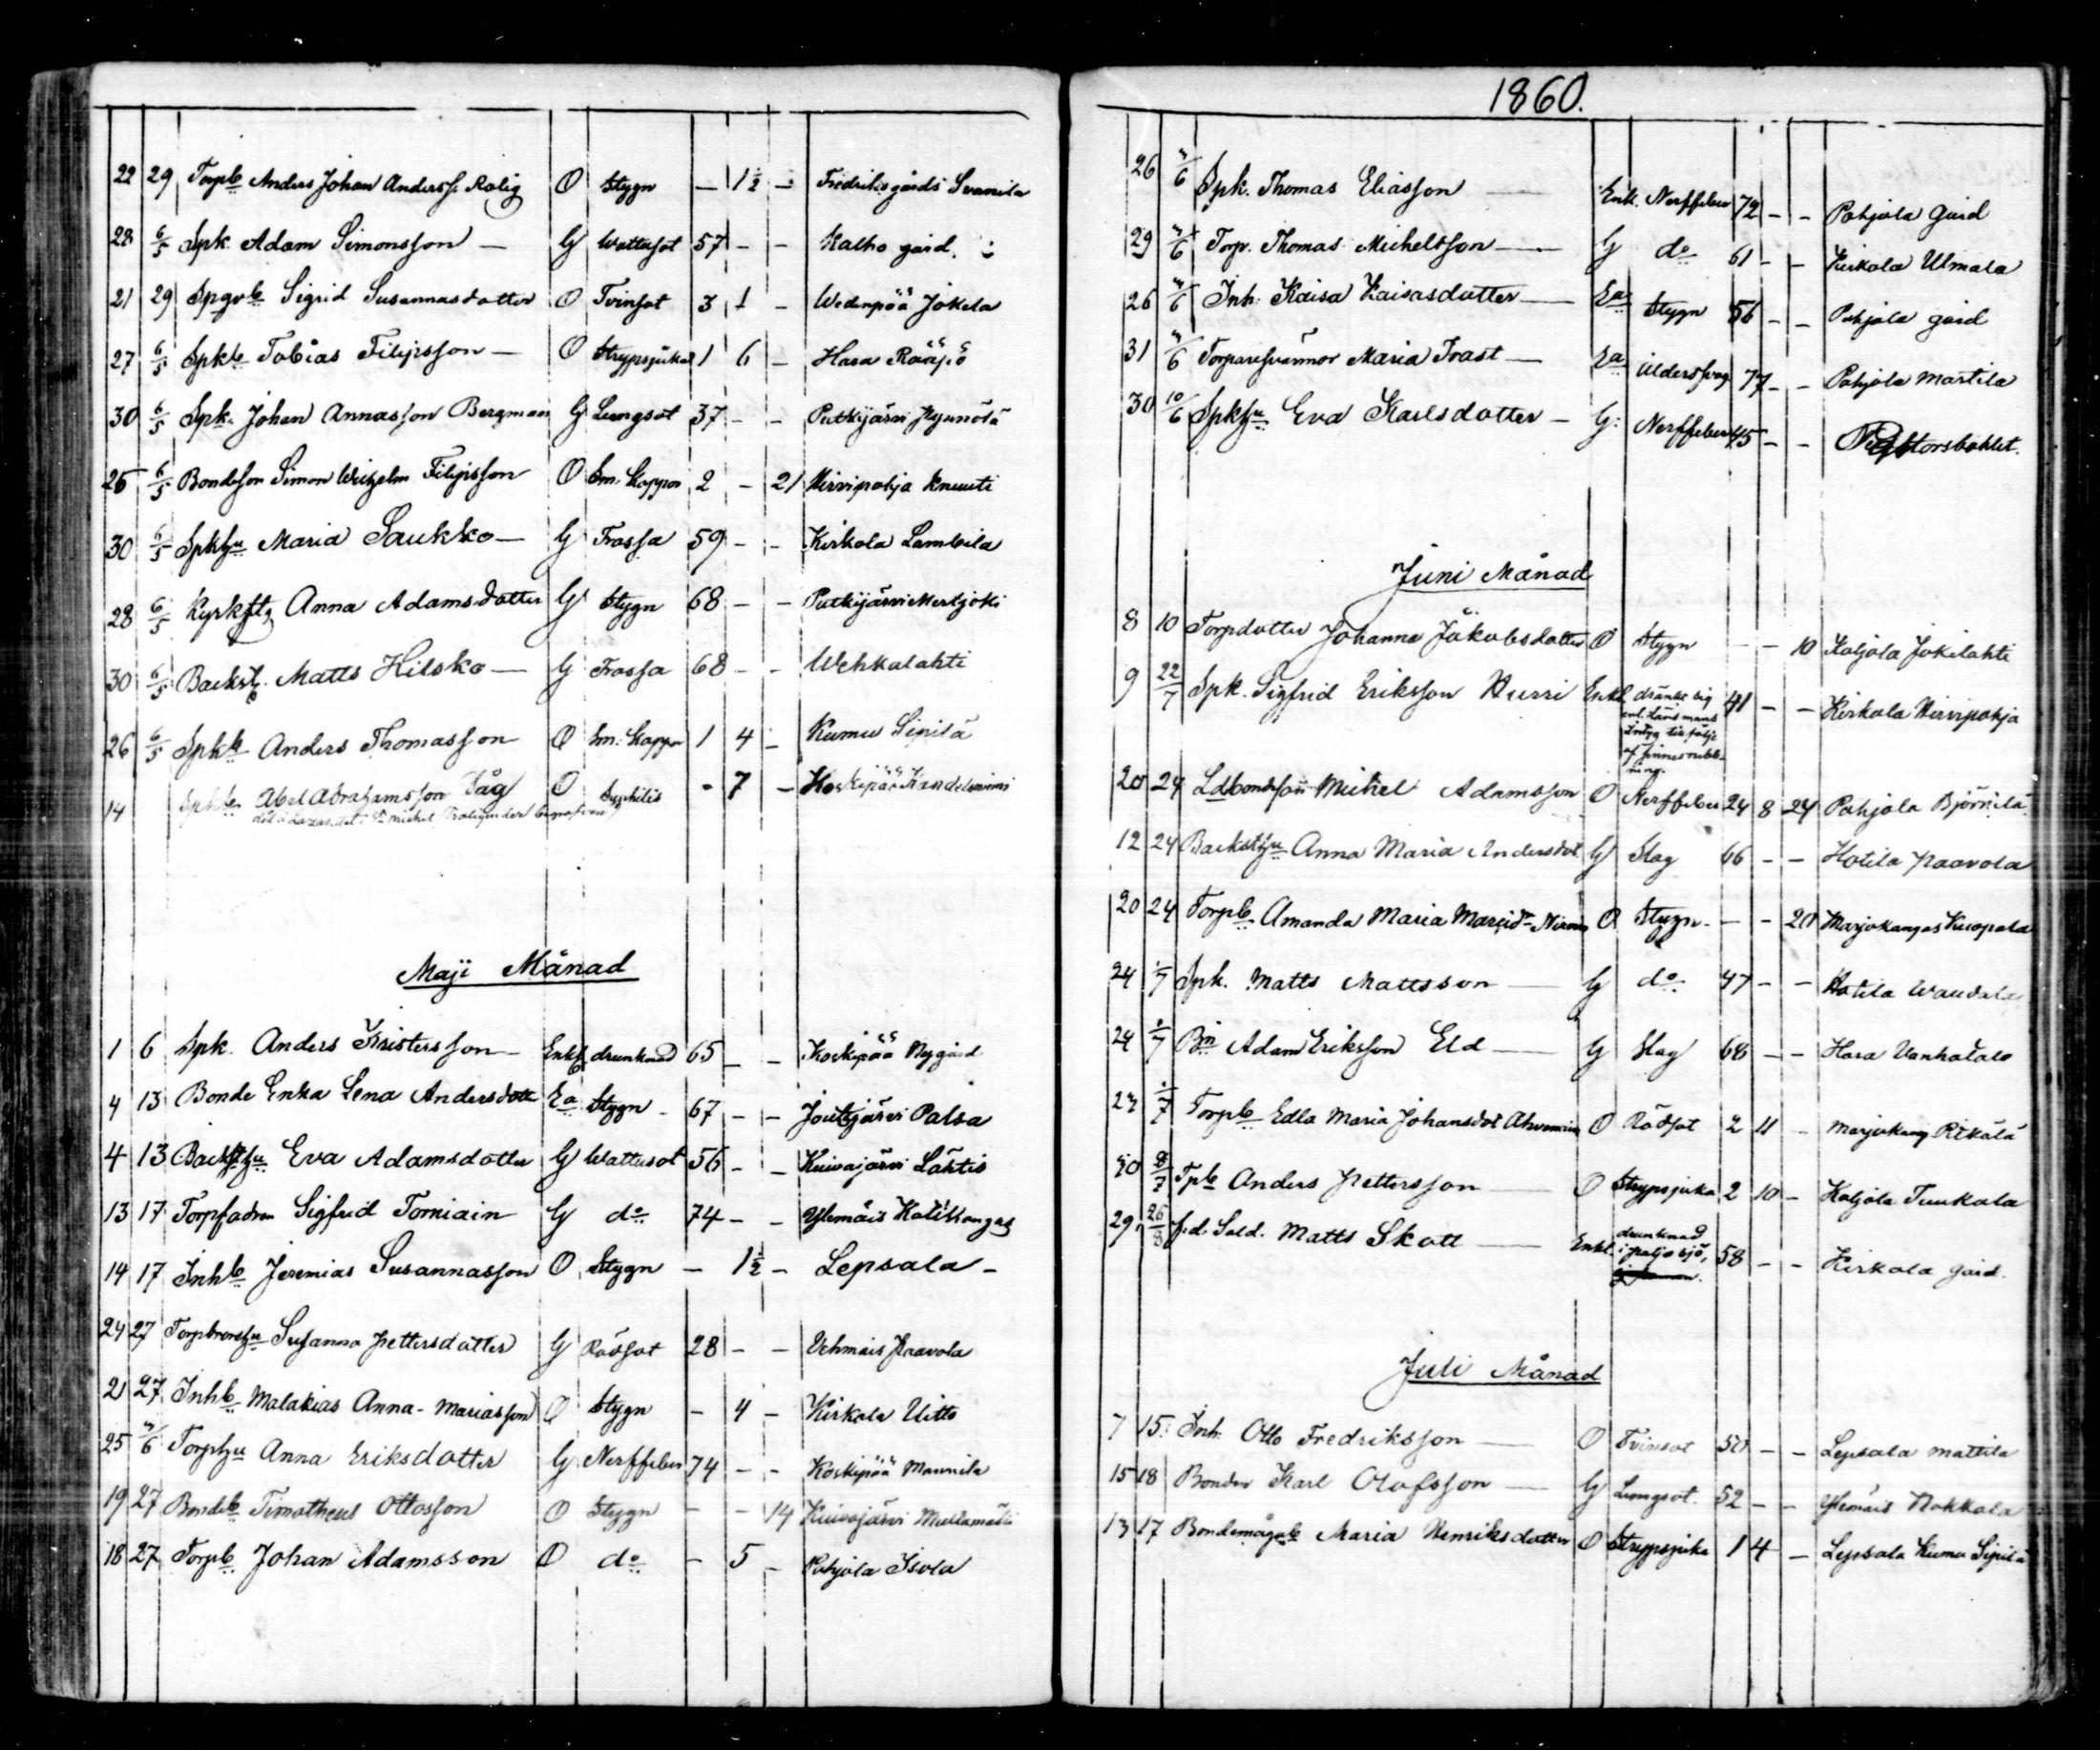 22 29 Torpb Anders Johan Anderss. Rolig O Stygn — 1½ — Fredriksgårds Svanila
28 6/5 Spk Adam Simonsson — G Wattusot 57 — — Kalho gård.
21 29 Spgvb Sigrid Susannasdotter O Tvinsot 3 1 — Wedenpää Jokela
27 6/5 Spkb Tobias Filipsson — O Strypsjuka 1 6 — Hara Rääsiö
30 6/5 Spk. Johan Annasson Bergman G Lungsot 37 — — Putkijärvi
26 6/5 Bondeson Simon Wilhelm Filipsson O Sm. Koppor 2 — 21 Hirvipohja Knuuti
30 6/5 Spkhu Maria Saukko — G Frossa 59 — — Kirkola Lambila
28 6/5 Anna Adamsdotter G Stygn 68 — — Putkijärvi Mertjoki
30 6/5 Backst. Matts Hilska — G Frossa 68 — — Wehkalahti
26 6/5 Spkb Anders Thomasson O Sm. Koppor 1 4 — Kumu Sipilä
14 Spkb Abel Abrahamsson Låg O Syphilis - 7 — Koskipää
Maji Månad
1 6 Spk. Anders Kristersson — Enkl drunknad 65 — — Koskipää Nygård
4 13 Bonde Enka Lena Andersdotter Ea Stygn - 67 — — Joutsjärvi Palsa
4 13 Backsthu Eva Adamsdotter G Wattusot 56 — — Kuivajärvi Lähtis
13 17 Torpfadren Sigfrid Torniain G do 74 — — Ylemäis Kotikangas
14 17 Inhb Jeremias Susannasson O Stygn — 1½ — Lepsala —
24 27 Susanna Pettersdotter G Rödsot 28 — — Vehmais Paavola
21 27 Inhb Malakias Anna-Mariasson O Stygn — 4 — Kirkola Uitto
25 3/6 Torphu Anna Eriksdotter G Nerffeber 74 — — Koskipää Mannila
19 27 Bondeb Timotheus Ottosson O Stygn — — 14 Kuivajärvi
18 27 Torpb Johan Adamsson O do — 5 — Pohjola Isola
1860.
26 3/6 Spk. Thomas Eliasson — Enkl. Nerffeber 72 — — Pohjola gård
29 3/6 Torp. Thomas Michelsson — G do 61 — — Kirkola Ulmala
26 3/6 Inh. Kaisa Kaisasdotter — Ea Stygn 56 — — Pohjola gård
31 3/6 Torparesvärmor Maria Trast — Ea 77 — — Pohjola Martila
30 10/6 Spkhu Eva Karlsdotter — G: Nerffeber 45 — —
Juni Månad
8 10 Torpdotter Johanna Jakobsdotter O Stygn — — 10 Koljola Jokilahti
9 22/7 Spk. Sigfrid Eriksson Hurri Enkl dränkt sig 41 — — Kirkola Hirvipohja
enl. Läns mans
intyg till följe
af sinnesrubb-
ning.
20 24 Ldbondeson Mickel Adamsson O Nerffeber 24 8 24 Pohjola Björnilä
12 24 Backsthu Anna Maria Andersdot. G Slag 66 — — Hotila Paavola
20 24 Torpb. Amanda Maria O Stygn - — — 20 Marjokangas
24 1/7 Spk. Matts Mattsson — G do 47 — — Hotila
24 1/7 Bn Adam Eriksson Eld — G Slag 68 — — Hara Vanhatalo
27 1/7 Torpb Edla Maria Johansdot O Rödsot 2 11 — Marjokang Rekälä
30 8/7 Tpb Anders Pettersson — O Strypsjuka 2 10 — Koljola Tuukala
29 26/8 f.d. Sold. Matts Skott — Enkl. drunknad 58 — — Kirkola gård.
i Paljo sjö,
Juli Månad
7 15 Inh: Otto Fredriksson — O Tvinsot 50 — — Lepsala Mattila
15 18 Bonden Karl Olofsson — G Lungsot. 52 — — Ylemäis Nokkala
13 17 Bondemågsb Maria Henriksdotter O Strypsjuka 1 4 — Lepsala Kumu Sipilä